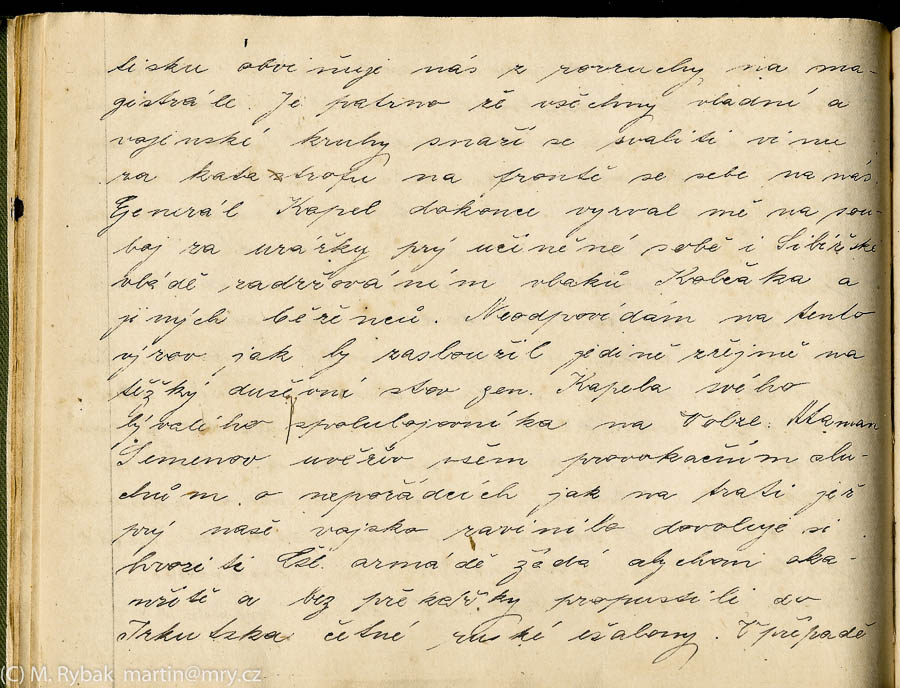 tisku obviňuje nás z rozruchy na ma-
gistrále. Je patrno že všechny vládní a
vojenské kruhy snaží se svaliti vinu
za katastrofu na frontě se sebe na nás.
Generál Kapel dokonce vyzval mě na sou-
boj za urážky prý učiněné sobě i Sibiřské
vládě zadržováním vlaků Kolčaka a
jiných běženců. Neodpovídám na tento
výzov, jak by zasloužil jedině zřejmě na
těžký duševní stav gen. Kapela svého
bývalého spolubojovníka na Volze. Ataman
Semenov uvěřiv všem provokačním slu-
chům o nepořádcích jak na trati jež
prý naše vojsko zavinilo dovoluje si
hroziti Čsl. armádě žádá abychom oka-
mžitě a bez překážky propustili do
Irkutska četné ruské ešalony. V případě
(C) M. Rybak martin@mry.cz